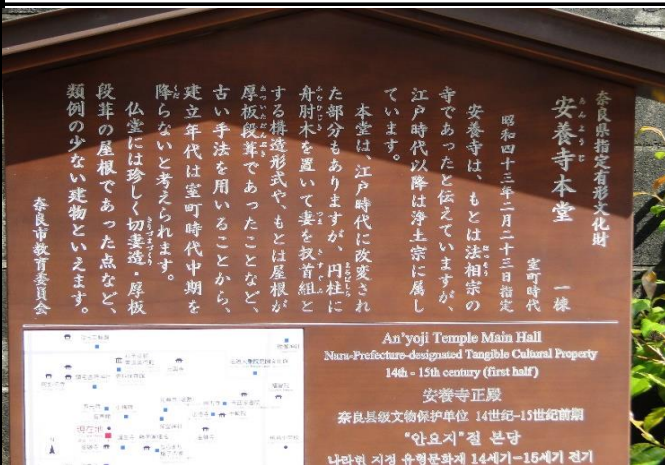 奈良県指定有形文化財
安養寺本堂 一棟
あんようじ
室町時代
昭和四十三年二月二十三日指定
安養寺は、もとは法相宗の
ほっそう
寺であったと伝えていますが、
江戸時代以降は浄土宗に属し
ています。
本堂は、江戸時代に改変され
た部分もありますが、円柱に
まるばしら
舟肘木を置いて妻を扠首組と
ふなひじき
つま
さすぐみ
する構造形式や、もとは屋根が
厚板段葺であったことなど、
あついただんぶき
古い手法を用いることから、
建立年代は室町時代中期を
降らないと考えられます。
くだ
仏堂には珍しく切妻造・厚板
きりづまづくり
段葺の屋根であった点など、
類例の少ない建物といえます。
奈良市教育委員会
An'yoji Temple Main Hall
Nara-Prefecture-designated Tangible Cultural Property
14th - 15th century (first half)
安養寺正殿
奈良县级文物保护单位 14世纪-15世纪前期
"안요지"절 본당
나라현 지정 유형문화재 14세기-15세기 전기
現在地